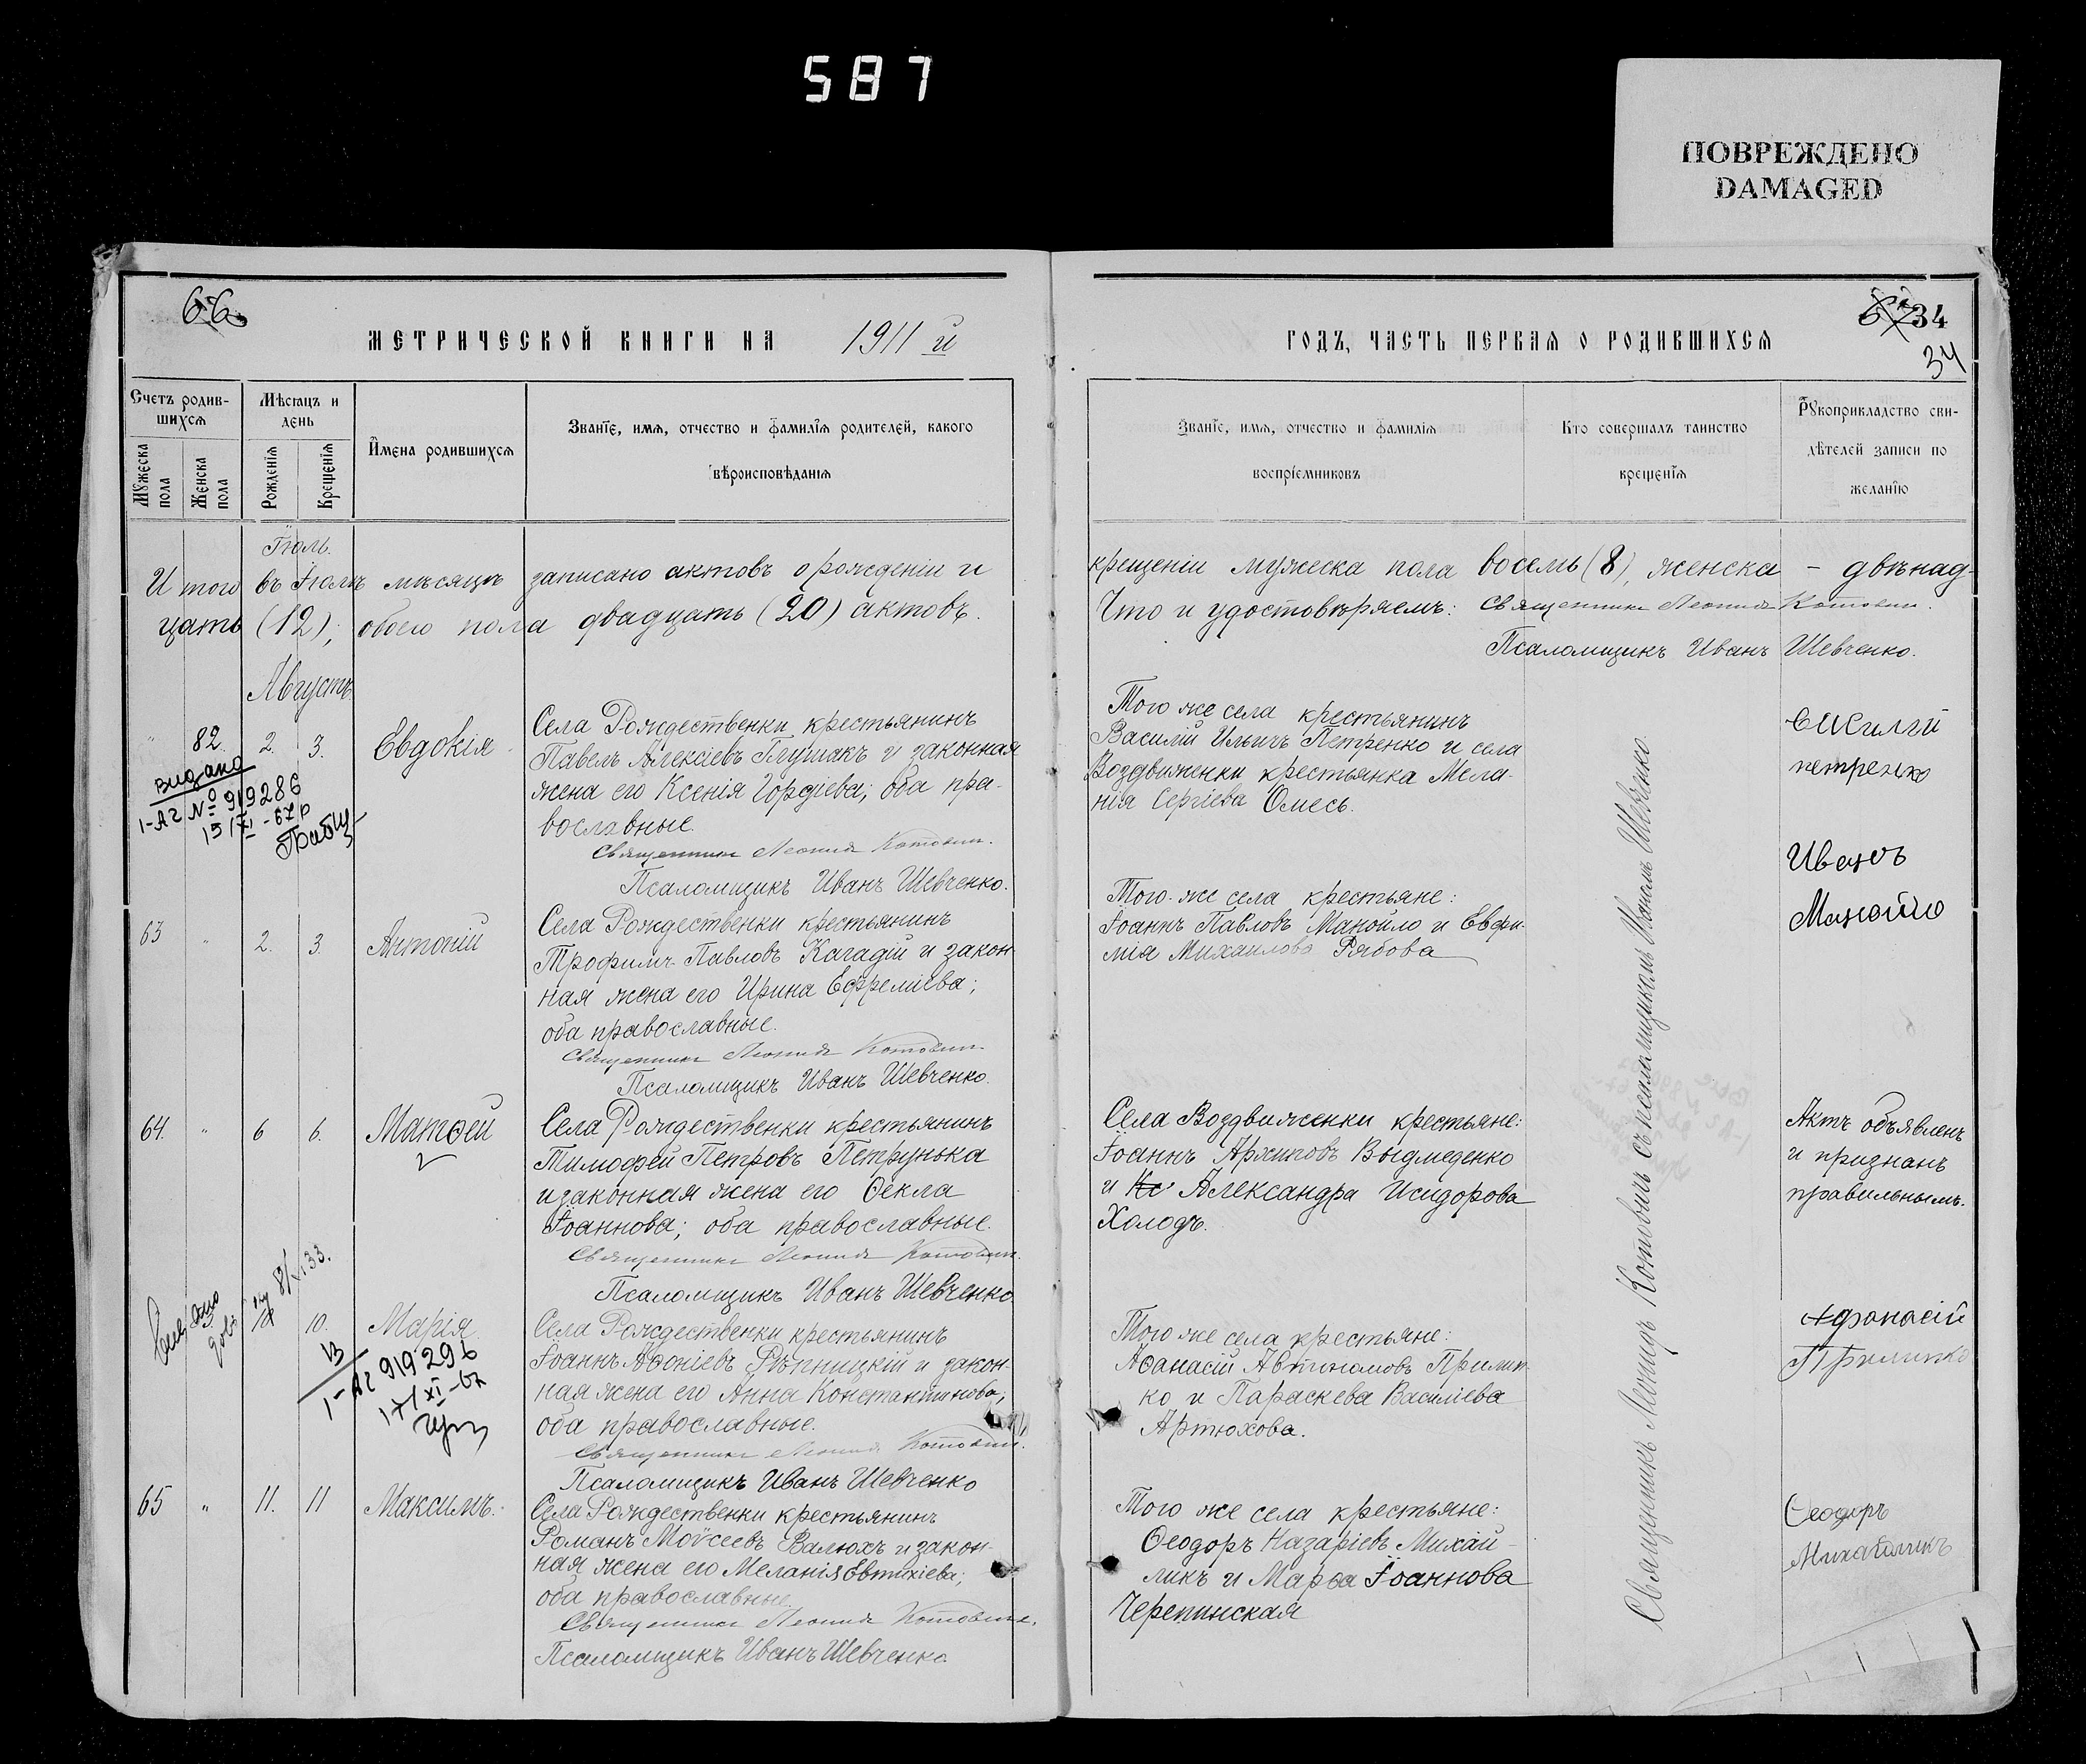 587
ПОВРЕЖДЕНО
DAMAGED
66
МЕТРИЧЕСКОЙ КНИГИ НА 1911 й
Счетъ родив-
шихся
Мужеска пола
Женска пола
Мѣсяцъ и
день
Рожденія
Крещенія
Имена родившихся
Званіе, имя, отчество и фамилія родителей, какого
вѣроисповѣданія
Іюль.
Итого въ Іюлѣ мѣсяцѣ записано актовъ о рожденіи и
цать (12); обоего пола двадцать (20) актовъ.
Августъ
" 82. 2. 3. Евдокія
Села Рождественки крестьянинъ
Павелъ Алексіевъ Глушакъ и законная
жена его Ксенія Гордіева; оба пра-
вославные.
Священникъ Леонидъ Котовичъ.
Псаломщикъ Иванъ Шевченко.
видано
I-АГ № 919286
15/XI-67р
63 " 2. 3. Антоній
Села Рождественки крестьянинъ
Трофимъ Павловъ Кагадій и закон-
ная жена его Ирина Ефреміева;
оба православные.
Священникъ Леонидъ Котовичъ.
Псаломщикъ Иванъ Шевченко.
64. " 6 6. Матѳей
Села Рождественки крестьянинъ
Тимофей Петровъ Петрунька
и законная жена его Ѳекла
Іоаннова; оба православные.
Священникъ Леонидъ Котовичъ.
Псаломщикъ Иванъ Шевченко.
10. Марія
Села Рождественки крестьянинъ
Іоаннъ Аѳоніевъ Рѣпницкій и закон-
ная жена его Анна Константинова;
оба православные.
Священникъ Леонидъ Котовичъ.
Псаломщикъ Иванъ Шевченко
I-АГ 919296
17/XI-67
65 " 11. 11 Максимъ.
Села Рождественки крестьянинъ
Романъ Моѵсеевъ Валюхъ и закон-
ная жена его Меланія Евтихіева;
оба православные.
Священникъ Леонидъ Котовичъ.
Псаломщикъ Иванъ Шевченко.
34
34
ГОДЪ, ЧАСТЬ ПЕРВАЯ О РОДИВШИХСЯ
Званіе, имя, отчество и фамилія
воспріемниковъ
Кто совершалъ таинство
крещенія
Рукоприкладство сви-
дѣтелей записи по
желанію
крещеніи мужеска пола восемь (8), женска - двѣнад-
Что и удостовѣряемъ: Священникъ Леонидъ Котовичъ.
Псаломщикъ Иванъ Шевченко.
Того же села крестьянинъ
Василій Ильичъ Петренко и села
Воздвиженки крестьянка Мела-
нія Сергіева Омесь.
петренко
Того-же села крестьяне:
Іоаннъ Павловъ Манойло и Евфи-
мія Михаилова Рябова
Иванъ
Манойло
Села Воздвиженки крестьяне:
Іоаннъ Архиповъ Выдмеденко
и Александра Исидорова
Холодъ.
Актъ объявленъ
и признанъ
правильнымъ.
Того же села крестьяне:
Аѳанасій Автономовъ Прилип-
ко и Параскева Василіева
Артюхова.
Афонасій
Прилипко
Того же села крестьяне:
Ѳеодоръ Назаріевъ Михай-
ликъ и Марѳа Іоаннова
Черепинская
Ѳеодоръ
Михайликъ
Священникъ Леонидъ Котовичъ съ псаломщикомъ Иваномъ Шевченко.